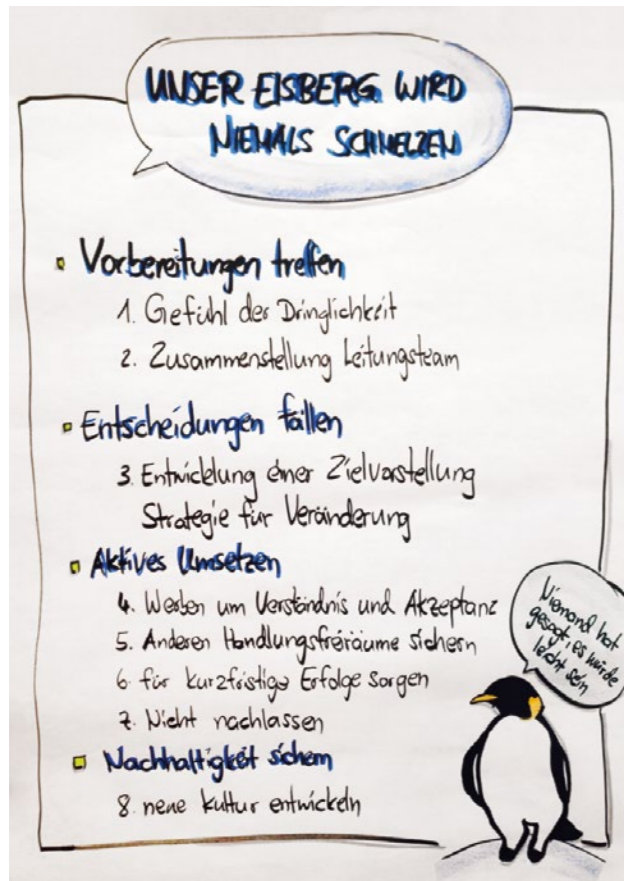 UNSER EISBERG WIRD
NIEMALS SCHMELZEN
Vorbereitungen treffen
1. Gefühl der Dringlichkeit
2. Zusammenstellung Leitungsteam
Entscheidungen fällen
3. Entwicklung einer Zielvorstellung
Strategie für Veränderung
Aktives Umsetzen
4. Werben um Verständnis und Akzeptanz
5. Anderen Handlungsfreiräume sichern
6. für kurzfristige Erfolge sorgen
7. Nicht nachlassen
Nachhaltigkeit sichern
8. neue Kultur entwickeln
Niemand hat
gesagt, es würde
leicht sein